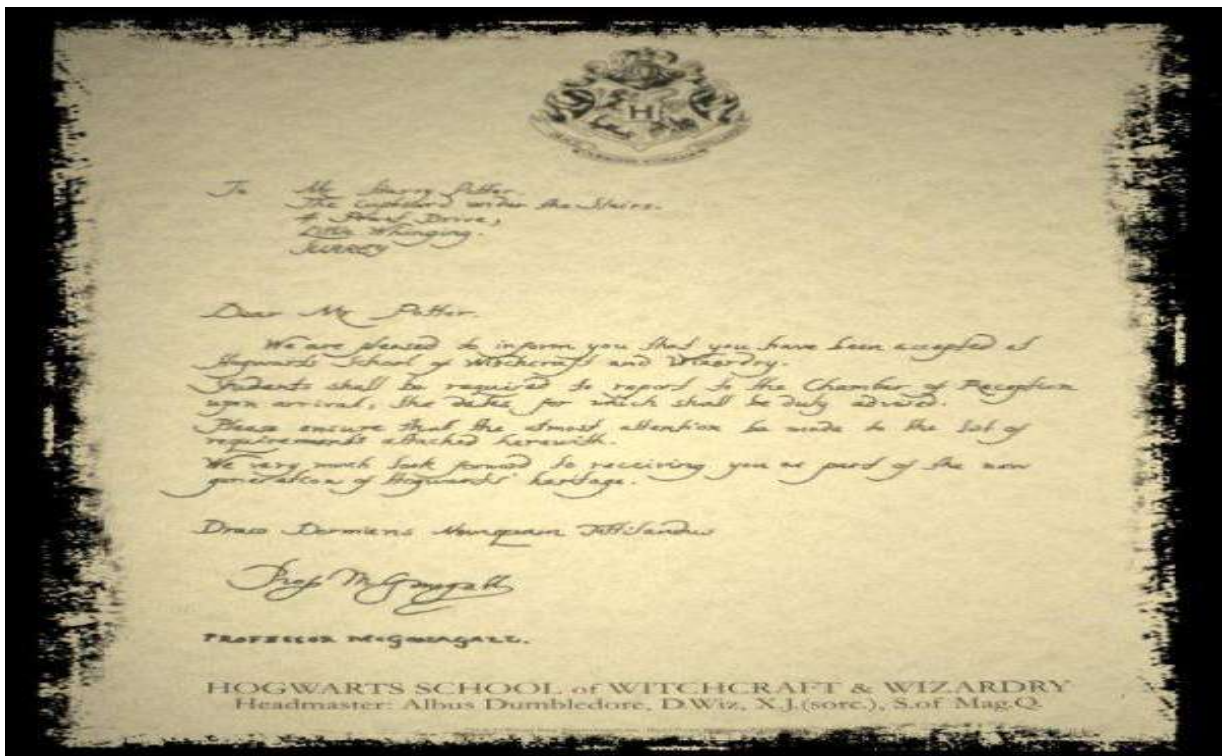 H
To Mr Harry Potter.
The Cupboard under the Stairs.
4 Privet Drive,
Little Whinging.
SURREY
Dear Mr Potter.
We are pleased to inform you that you have been accepted at
Hogwarts School of Witchcraft and Wizardry.
Students shall be required to report to the Chamber of Reception
upon arrival, the dates for which shall be duly advised.
Please ensure that the utmost attention be made to the list of
requirements attached herewith.
We very much look forward to receiving you as part of the new
generation of Hogwarts' heritage.
Draco Dormiens Nunquam Titillandus
Prof McGonagall
PROFESSOR McGONAGALL.
HOGWARTS SCHOOL of WITCHCRAFT & WIZARDRY
Headmaster: Albus Dumbledore, D.Wiz, X.J.(sorc.), S.of Mag.Q